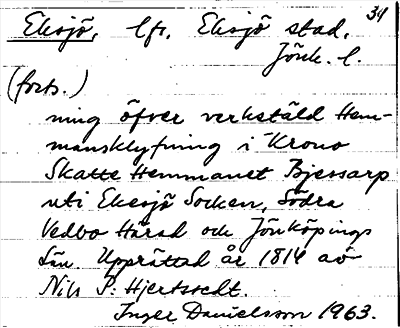 34
Eksjö, lfs. Eksjö stad,
Jönk. l.
(forts.)
ning öfver verkstäld Hem-
mansklyfning i Krono
Skatte Hemmanet Bjessarp
uti Ekesjö Socken, Södra
Vedbo Härad och Jönköpings
Län. Upprättad år 1814 av
Nils P: Hjertstedt.
Inger Danielsson 1963.